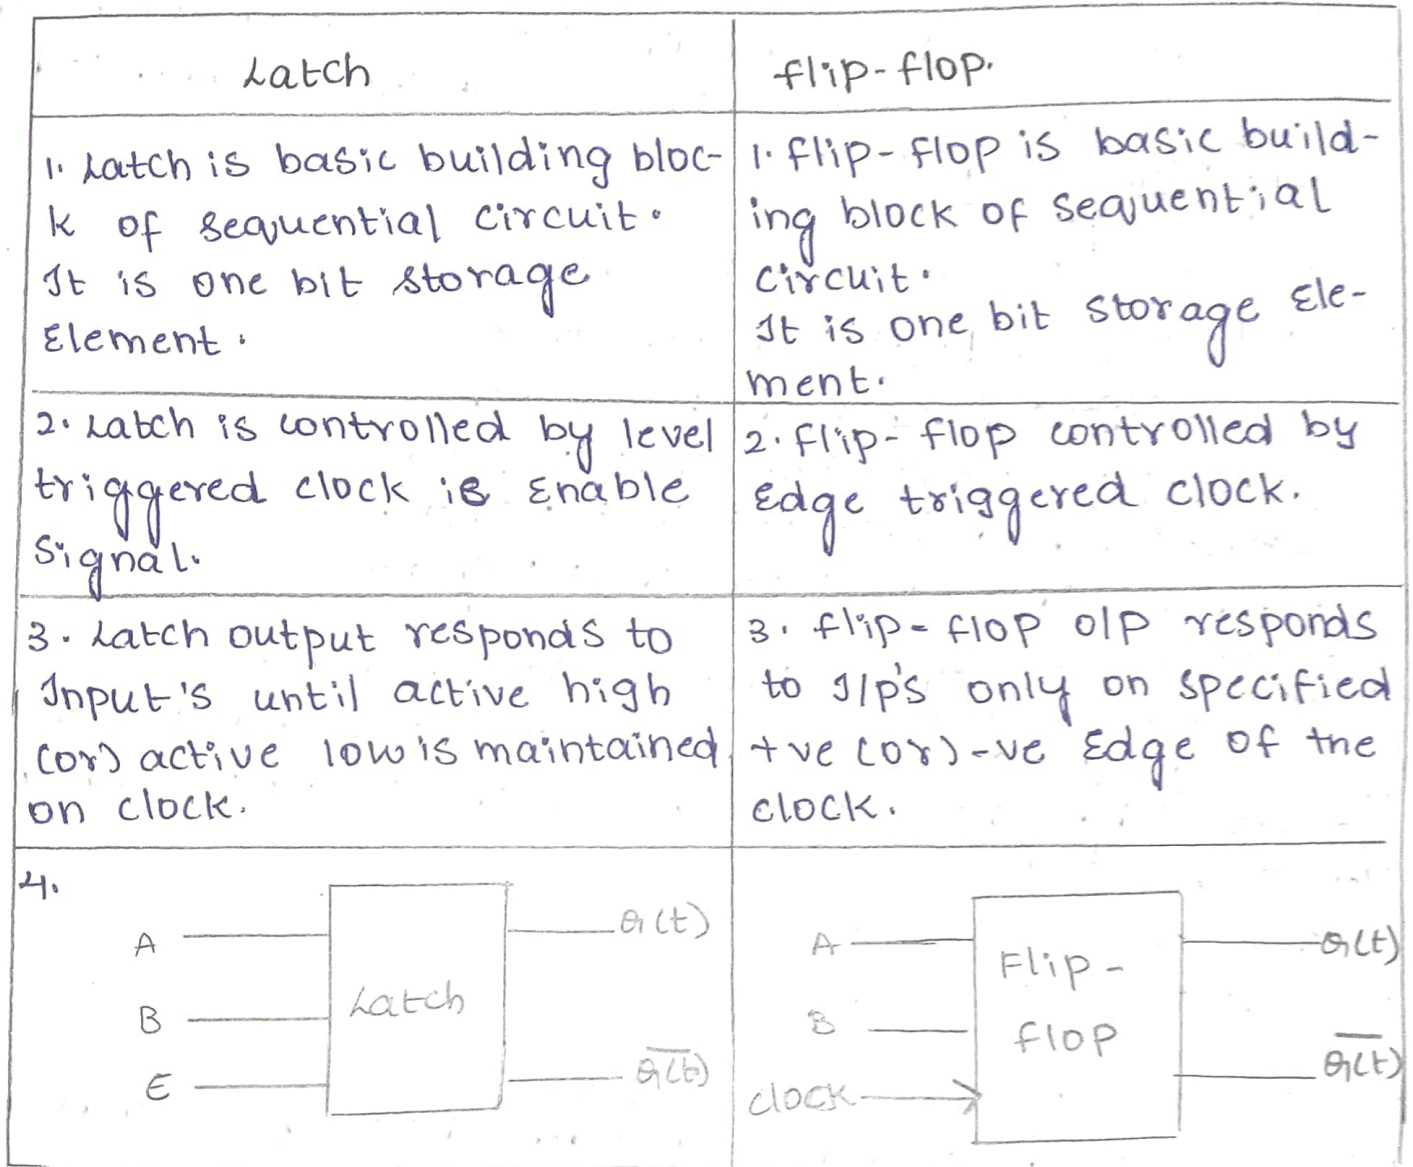 Latch
flip-flop.
1. Latch is basic building bloc-
k of sequential circuit.
It is one bit storage
Element.
1. flip-flop is basic build-
ing block of sequential
circuit.
It is one bit storage Ele-
ment.
2. Latch is controlled by level
triggered clock is Enable
Signal.
2. flip-flop controlled by
Edge triggered clock.
3. Latch output responds to
Input's until active high
(or) active low is maintained
on clock.
3. flip-flop o/p responds
to I/p's only on specified
+ve (or) -ve Edge of the
clock.
4.
A
B
E
Latch
Q(t)
Q̅(̅t̅)̅
A
B
clock
Flip-
flop
Q(t)
Q̅(̅t̅)̅